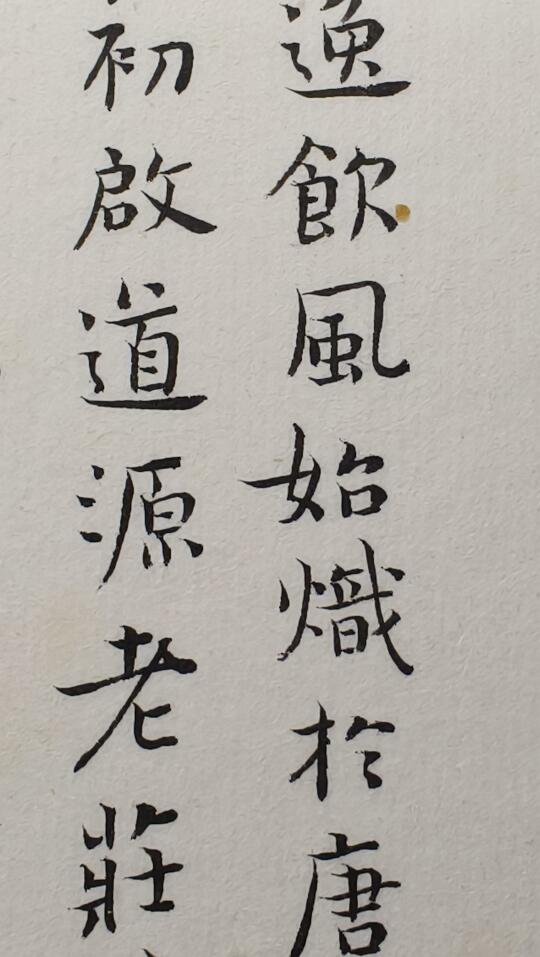 逸飲風始熾於唐
初啟道源老莊